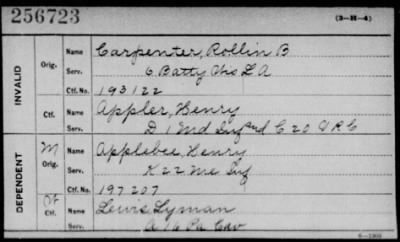 256723 (3-H-4)
INVALID
Orig. Name Carpenter, Rollin B
Serv. 6 Batty Ohio L A
Ctf. No. 193122
Ctf. Name Appler, Henry
Serv. D 1 Md Inf and C 20 V R C
DEPENDENT
M Orig. Name Applebee, Henry
Serv. K 22 Me Inf
Ctf. No. 197207
Ctf. Name Lewis Lyman
Serv. A 16 Pa Cav